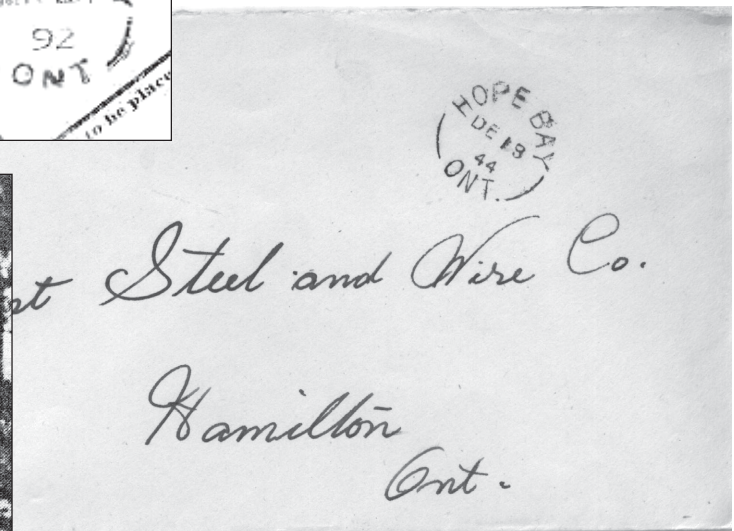 92
ONT
to be place
HOPE BAY
DE 18
44
ONT.
Steel and Wire Co.
Hamilton
Ont.